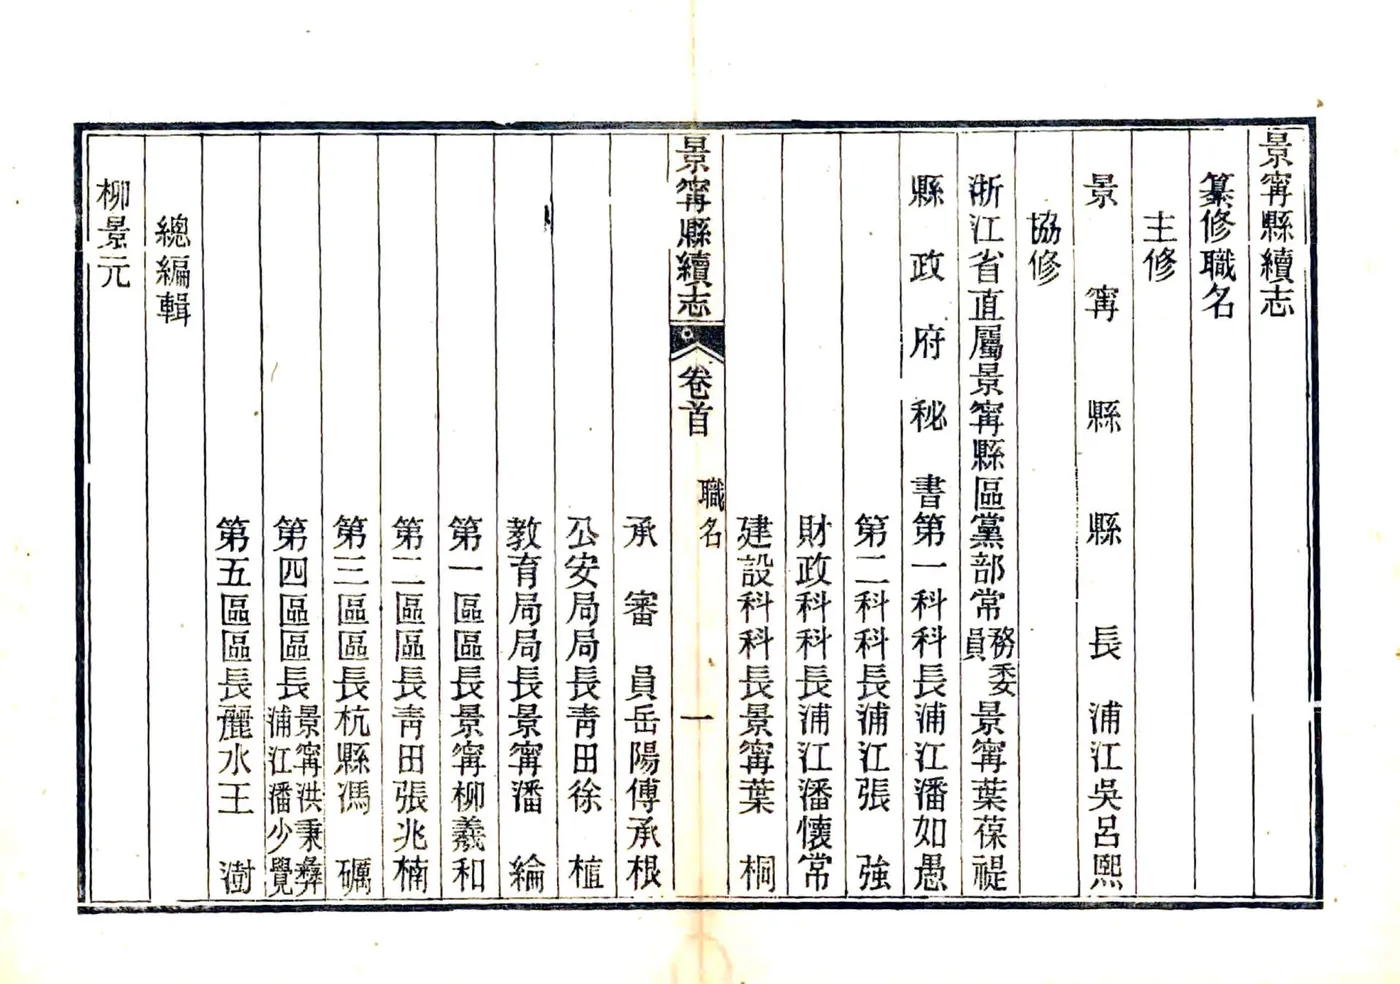 景寗縣續志
纂修職名
主修
景寗縣縣長浦江吳呂熙
協修
浙江省直屬景寗縣區黨部常務委員景寗葉葆禔
縣政府秘書第一科科長浦江潘如愚
第二科科長浦江張強
財政科科長浦江潘懷常
建設科科長景寗葉桐
景寗縣續志 卷首 職名 一
承審員岳陽傅承根
公安局局長青田徐植
教育局局長景寗潘綸
第一區區長景寗柳羲和
第二區區長青田張兆楠
第三區區長杭縣馮礪
第四區區長景寗洪秉彝浦江潘少覺
第五區區長麗水王澍
總編輯
柳景元